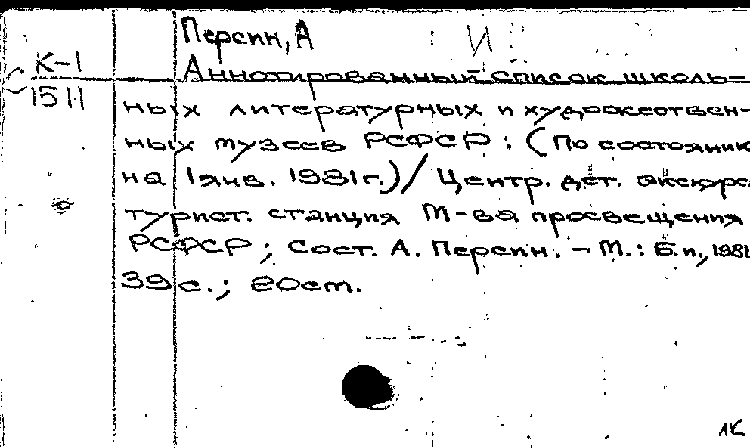 Персин, А
И
К-1
1511
Аннотированный список школь-
ных литературных и художествен-
ных музеев РСФСР: (По состоянию
на 1 янв. 1981г.) / Центр. дет. экскурс.
турист. станция М-ва просвещения
РСФСР; Сост. А. Персин. - М.: Б.и., 1981
39 с.; 20 см.
АК